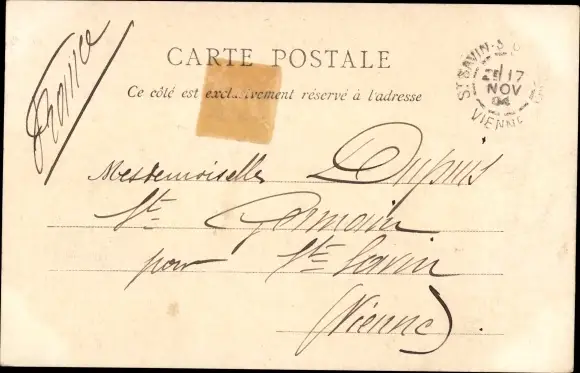 France
CARTE POSTALE
Ce côté est exclusivement réservé à l'adresse
ST SAVIN-S
17
NOV
04
VIENNE
Mesdemoiselles Dupuis
St. Germain
pour St. Savin
(Vienne)